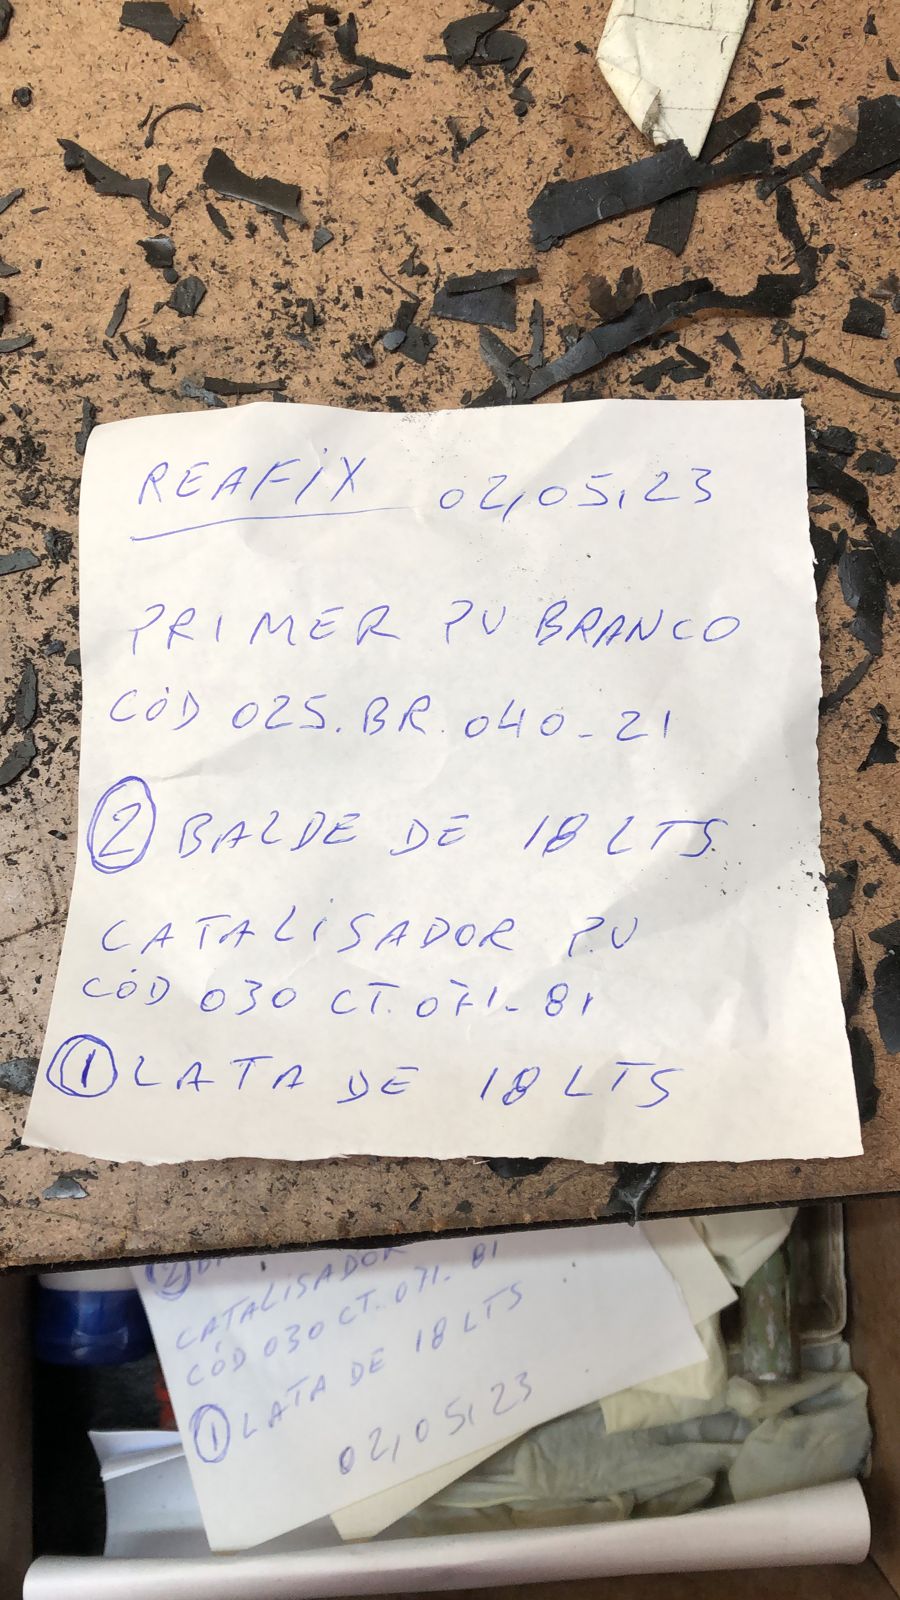 REAFIX 02,05,23
PRIMER PU BRANCO
CÓD 025.BR.040-21
2 BALDE DE 18 LTS
CATALISADOR P.U
CÓD 030 CT.071-81
1 LATA DE 18 LTS
CATALISADOR
CÓD 030 CT.071-81
1 LATA DE 18 LTS
02,05,23